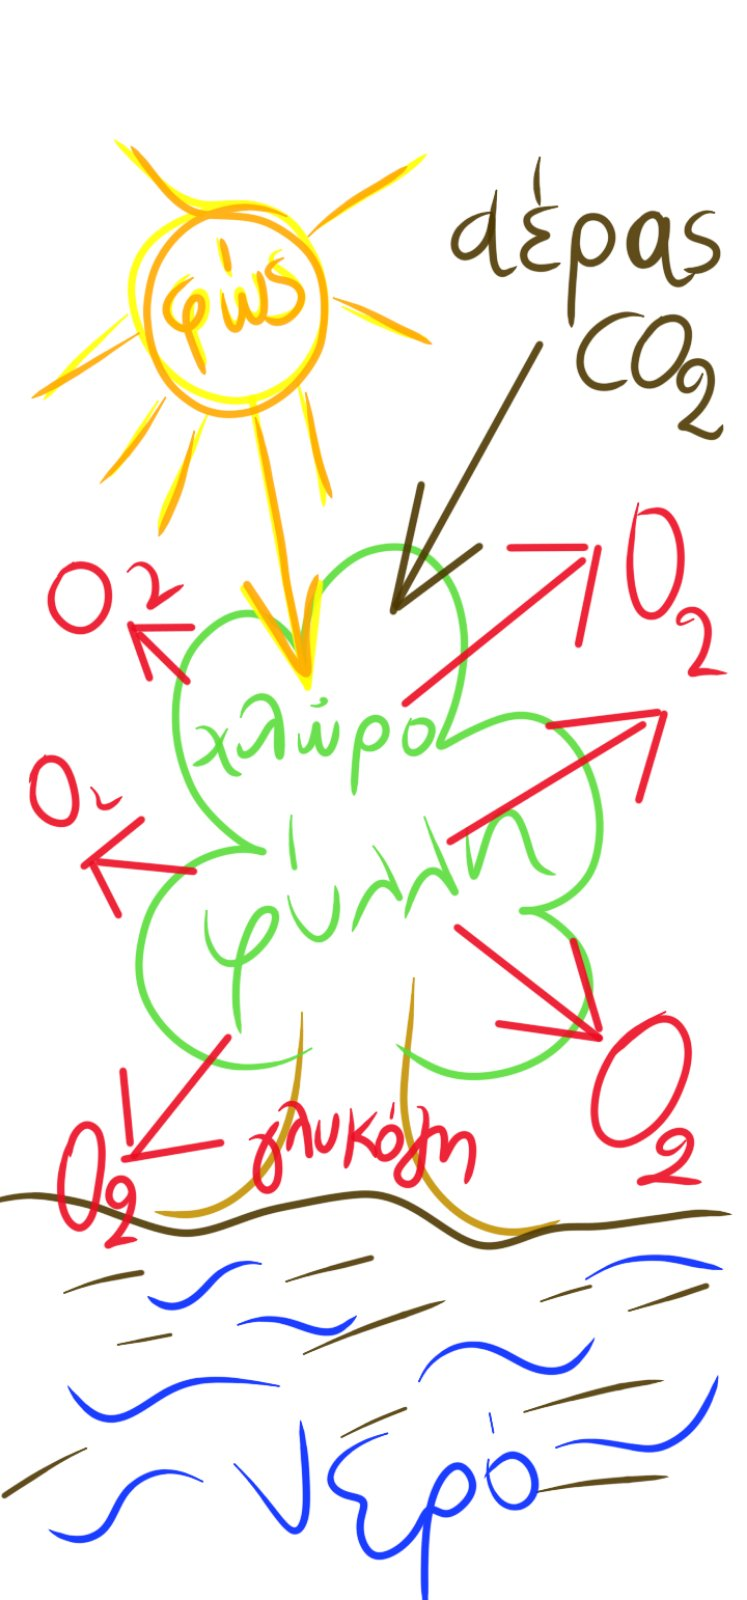 φώς
αέρας
CO2
O2
O2
χλώρο
O2
φύλλη
O2
γλυκόζη
O2
νερό